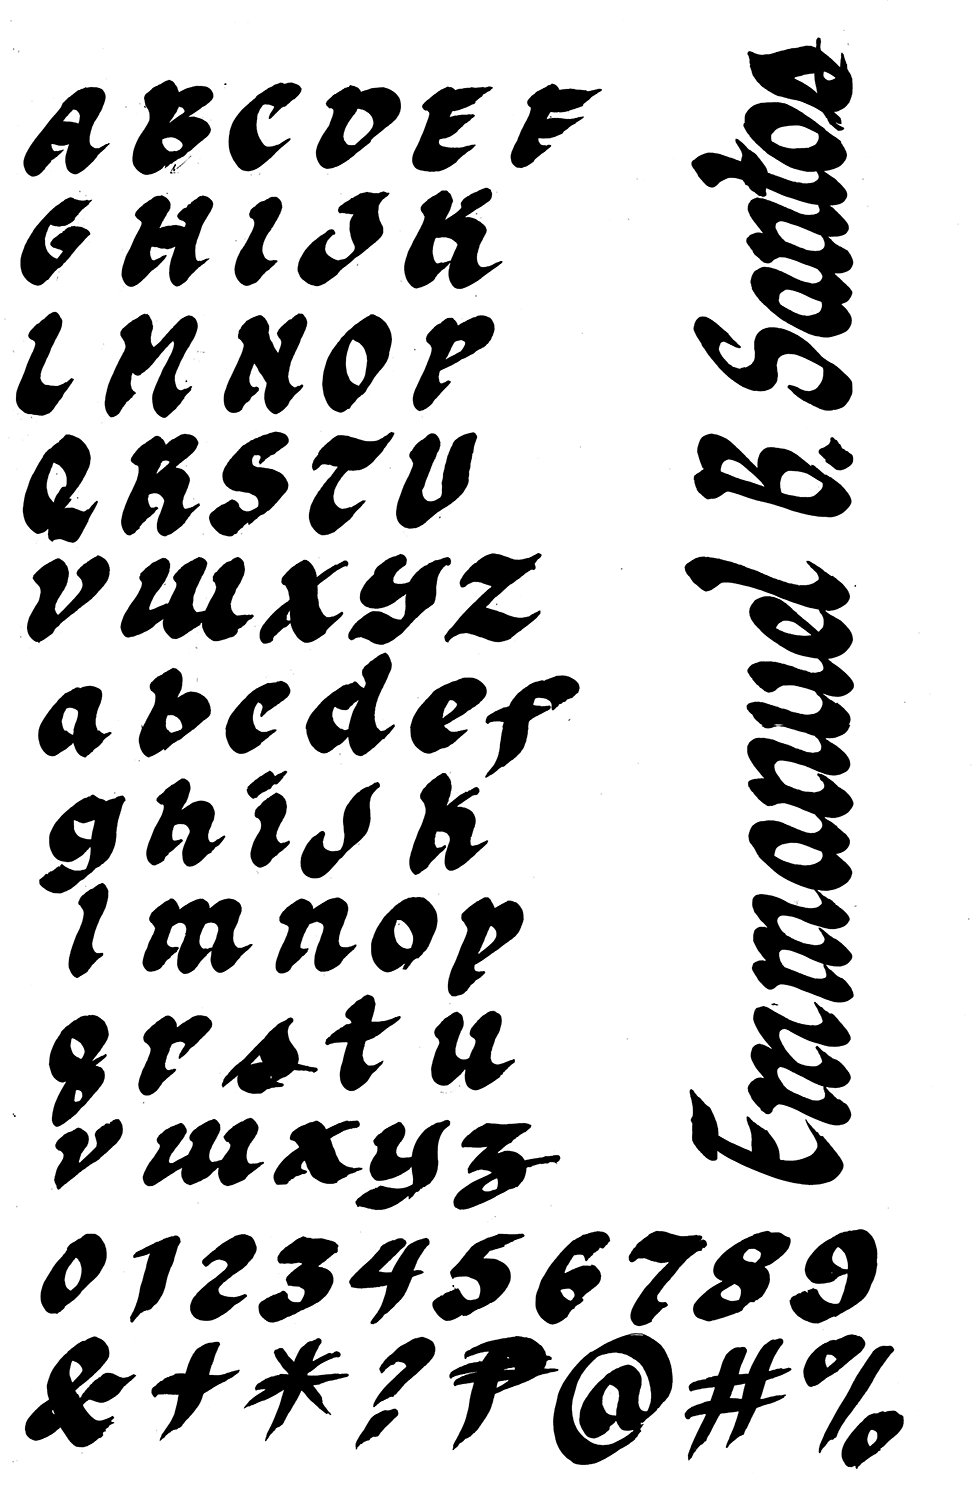 A B C D E F
G H I J K
L M N O P
Q R S T U
V W X Y Z
a b c d e f
g h i j k
l m n o p
q r s t u
v w x y z
0 1 2 3 4 5 6 7 8 9
& + * ? ₱ @ # %
Emmanuel B. Santos